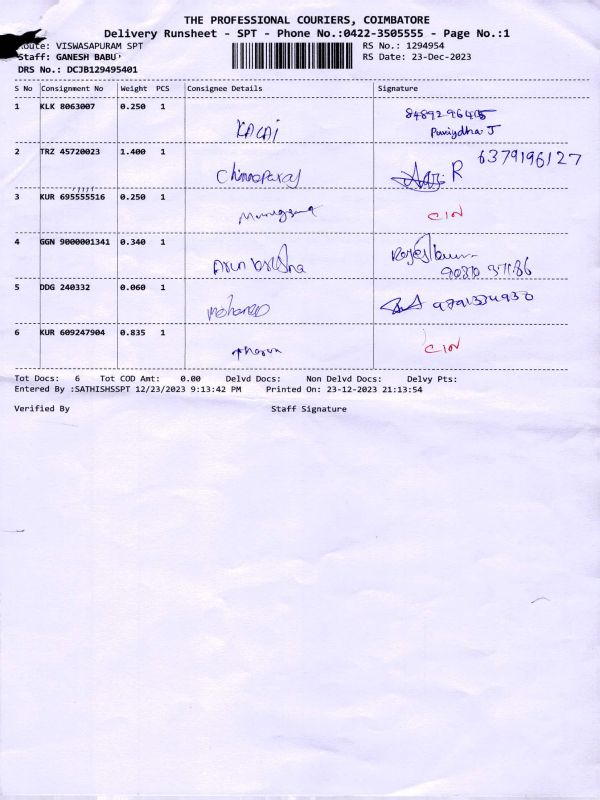 THE PROFESSIONAL COURIERS, COIMBATORE
Delivery Runsheet - SPT - Phone No.:0422-3505555 - Page No.:1
Route: VISWASAPURAM SPT
RS No.: 1294954
Staff: GANESH BABU
RS Date: 23-Dec-2023
DRS No.: DCJB129495401
S No Consignment No Weight PCS Consignee Details Signature
1 KLK 8063007 0.250 1
KALAI
8489296405
J
2 TRZ 45720023 1.400 1
Chinnaparaj
R 6379196127
3 KUR 695555516 0.250 1
4 GGN 9000001341 0.340 1
Arun
5 DDG 240332 0.060 1
6 KUR 609247904 0.835 1
Tot Docs: 6 Tot COD Amt: 0.00 Delvd Docs: Non Delvd Docs: Delvy Pts:
Entered By :SATHISHSSPT 12/23/2023 9:13:42 PM Printed On: 23-12-2023 21:13:54
Verified By Staff Signature